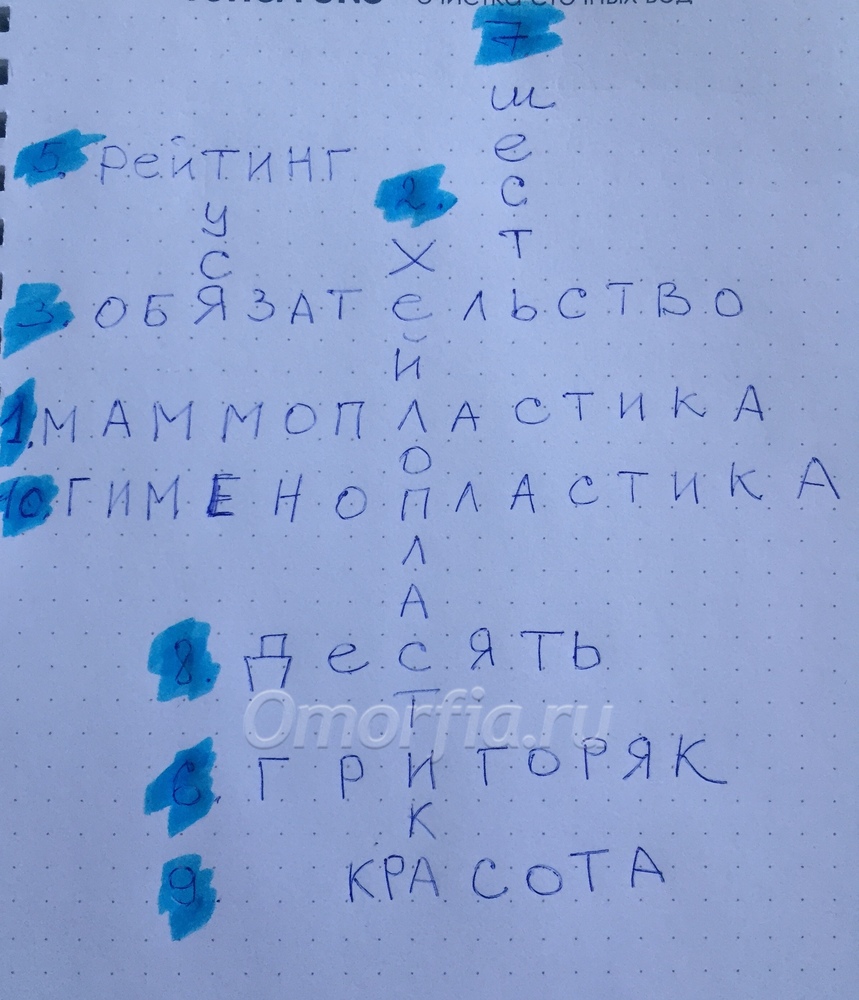 очистка сточных вод
7
шесть
5. Рейтинг
2.
хейлопластика
туся
3. ОБЯЗАТеЛЬСТВО
1. МАММОПЛАСТИКА
10. ГИМЕНОПЛАСТИКА
8. ДеСЯТЬ
Omorfia.ru
6. ГРИГОРЯК
9. КРАСОТА